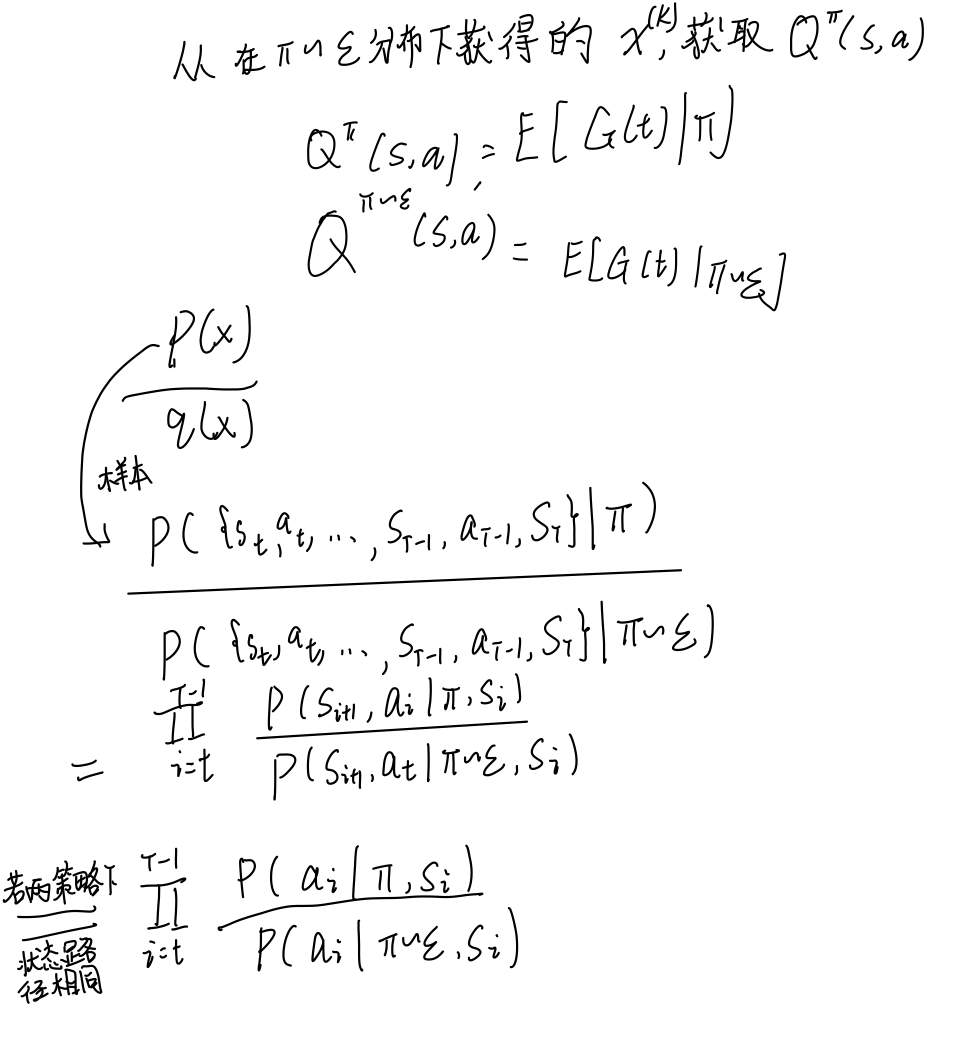 从在π~ε分布下获得的 x^(k), 获取 Q^π(s,a)
Q^π(s,a) = E[G(t)|π]
Q^π~ε(s,a) = E[G(t)|π~ε]
P(x)
q(x)
样本
P({s_t,a_t,...,S_T-1,a_T-1,S_T}|π)
P({s_t,a_t,...,S_T-1,a_T-1,S_T}|π~ε)
= ∏_{i=t}^{T-1} P(S_i+1,a_i|π,S_i)
P(S_i+1,a_t|π~ε,S_i)
若两策略下
状态路
径相同
∏_{i=t}^{T-1} P(a_i|π,S_i)
P(a_i|π~ε,S_i)